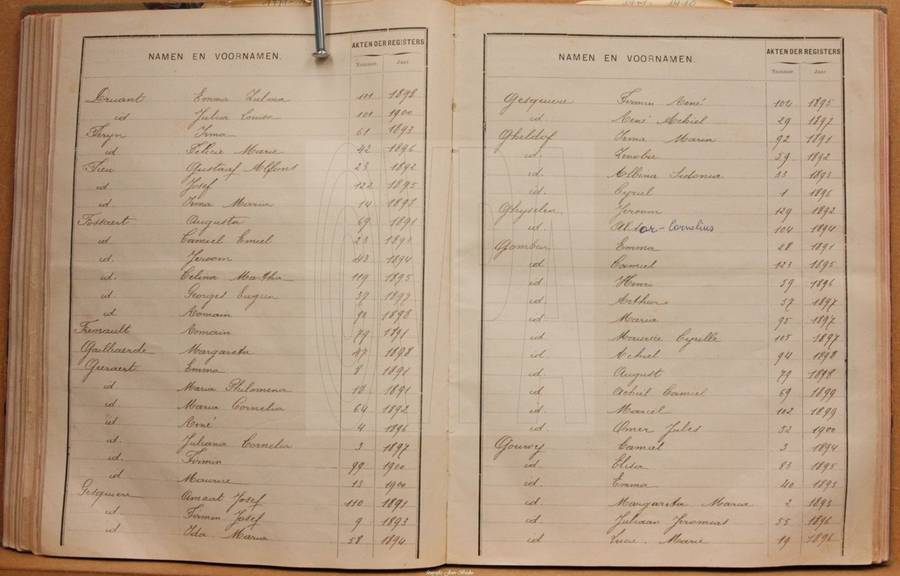 NAMEN EN VOORNAMEN. AKTEN DER REGISTERS
Nummer Jaar
Druant Emma Zulma 101 1898
id Julia Louisa 101 1900
Feryn Irma 61 1893
id Felicie Marie 42 1896
Gustaaf Alfons 23 1892
id. Josef 122 1895
id. Irma Maria 14 1898
Foskaert Augusta 69 1891
id. Camiel Emiel 23 1893
id. Jeroom 43 1894
id. Celina Martha 119 1895
id Georges Eugeen 37 1897
id Romain 90 1898
Fremault Romain 79 1898
Gailhaerde Margareta 47 1898
Geeraert Emma 8 1891
id Maria Philomena 10 1891
id. Maria Cornelia 64 1892
id René 4 1896
id. Juliana Cornelia 3 1897
id. Firmin 99 1900
id Maurice 13 1900
Gesquiere Amaat Josef 110 1891
id Firmin Josef 9 1893
id Ida Maria 58 1894
NAMEN EN VOORNAMEN. AKTEN DER REGISTERS
Nummer Jaar
Gesquiere Firmin René 104 1895
id René Achiel 29 1897
Gheldof Irma Maria 92 1891
id. Zenobie 39 1892
id. Albina Sidonia 13 1893
id. Cyriel 1 1896
Ghyselen Jeroom 129 1892
id. Aloor-Cornelius 104 1894
Gombeir Emma 28 1891
id. Camiel 123 1895
id. Henri 39 1896
id. Arthur 37 1897
id. Maria 95 1897
id. Mauritz Cyrille 105 1897
id. Achiel 94 1898
id. August 79 1898
id. Achiel Camiel 69 1899
id. Marcel 102 1899
id. Omer Jules 32 1900
Gouwy Camiel 3 1894
id. Elisa 83 1895
id. Emma 40 1893
id. Margareta Maria 2 1893
id. Juliaan Jeremias 55 1896
id Lucie Marie 19 1896